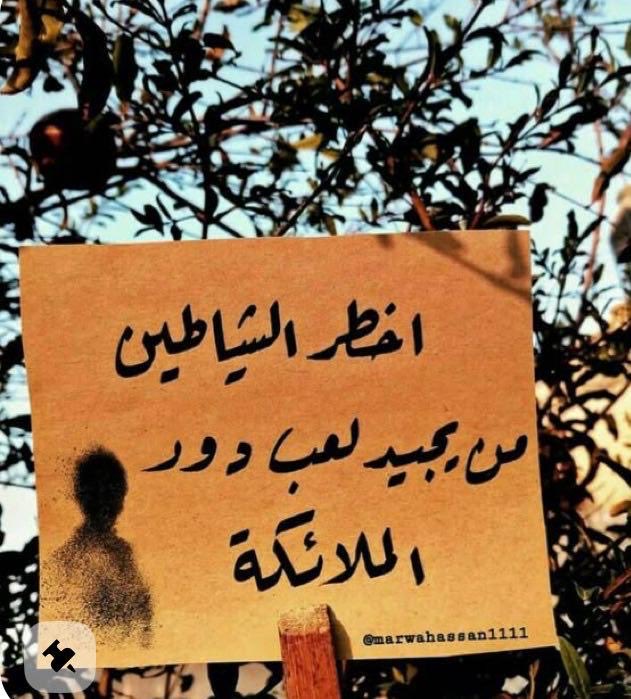 اخطر الشياطين
من يجيد لعب دور
الملائكة
@marwahassan1111